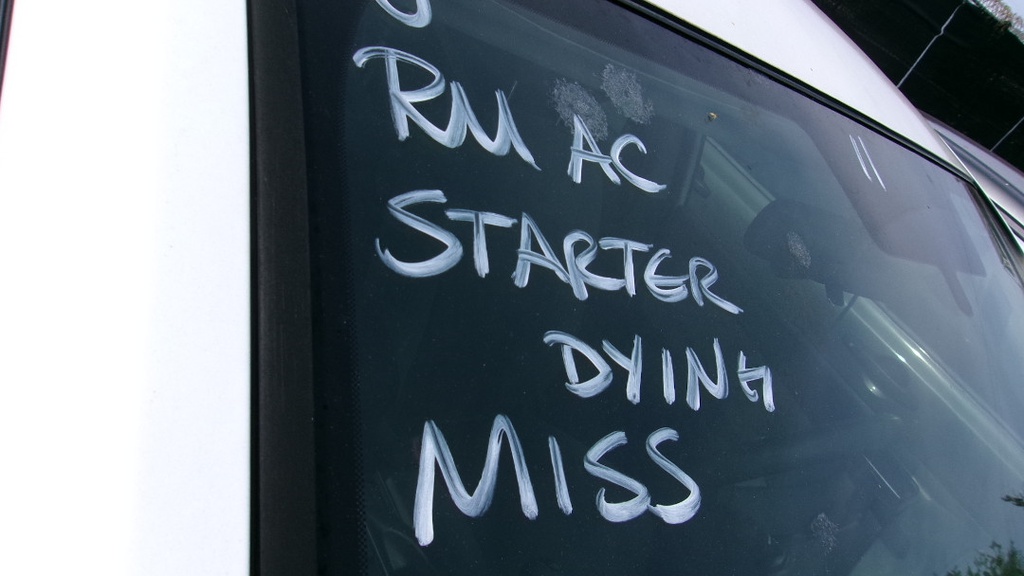 RM AC
STARTER
DYING
MISS